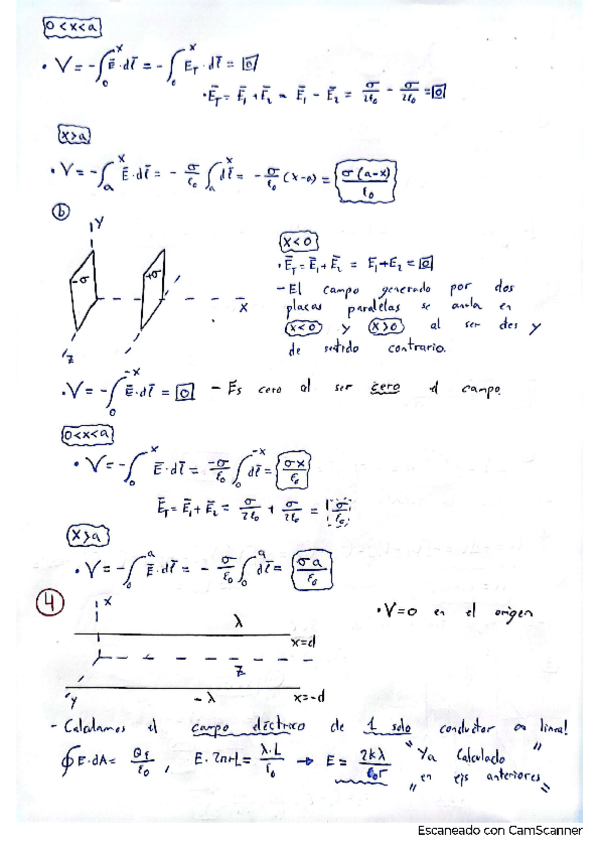 0<x<a
• V = -∫₀ˣ Ē·dl̄ = -∫₀ˣ E_T·dl̄ = 0
• Ē_T = Ē₁ + Ē₂ = Ē₁ - Ē₂ = σ/2ε₀ - σ/2ε₀ = 0
x>a
• V = -∫ₐˣ Ē·dl̄ = -σ/ε₀ ∫ₐˣ dl̄ = -σ/ε₀ (x-a) = σ(a-x)/ε₀
b
Y
-σ
+σ
X
Z
x<0
• Ē_T = Ē₁ + Ē₂ = E₁+E₂ = 0
- El campo generado por dos
placas paralelas se anula en
x<0 y x>0 al ser des y
de sentido contrario.
• V = -∫₀⁻ˣ Ē·dl̄ = 0 - Es cero al ser cero el campo.
0<x<a
• V = -∫₀ˣ Ē·dl̄ = -σ/ε₀ ∫₀⁻ˣ dl̄ = σx/ε₀
Ē_T = Ē₁ + Ē₂ = σ/2ε₀ + σ/2ε₀ = σ/ε₀
x>a
• V = -∫₀ᵃ Ē·dl̄ = -σ/ε₀ ∫₀ᵃ dl̄ = σa/ε₀
4
X
λ
x=d
Z
Y
-λ
x=-d
• V=0 en el origen
- Calculamos el campo eléctrico de 1 solo conductor en linea!
∮E·dA = Qf/ε₀, E·2πrL = λ·L/ε₀ → E = 2kλ/ε₀r "Ya Calculado"
"en ejs anteriores"
Escaneado con CamScanner